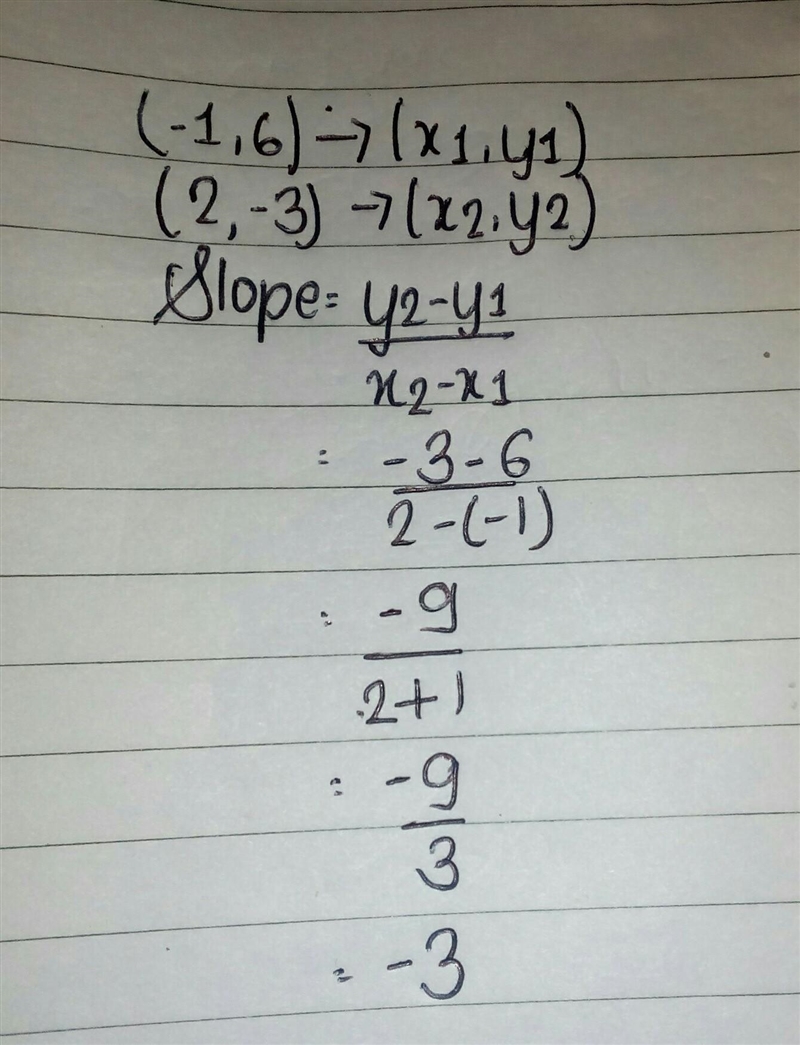 (-1,6) → (x1,y1)
(2,-3) → (x2,y2)
Slope = y2-y1
x2-x1
= -3-6
2-(-1)
= -9
2+1
= -9
3
= -3